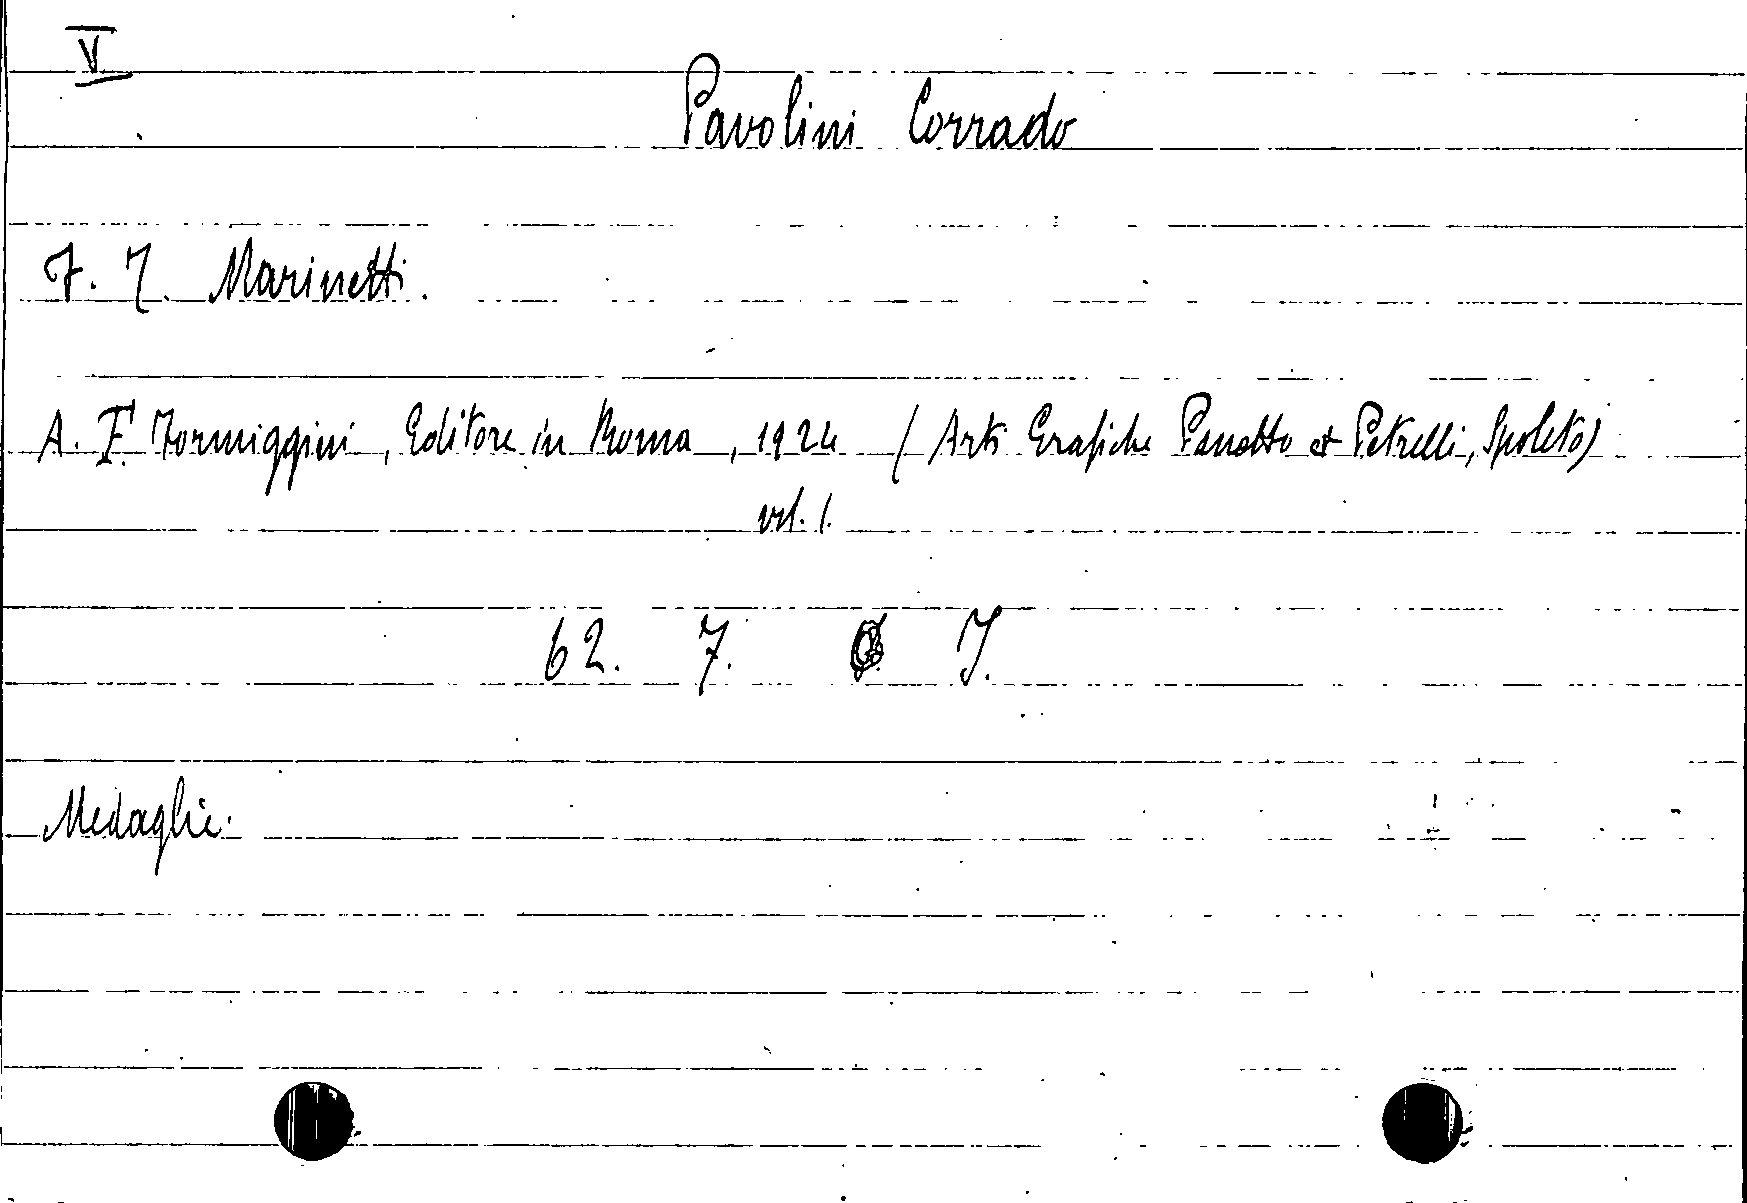 V
Pavolini Corrado
F. T. Marinetti.
A. F. Formiggini, Editore in Roma, 1924 (Arti Grafiche Panetto & Petrelli, Spoleto)
vol. 1.
62. 7. J.
Medaglie.